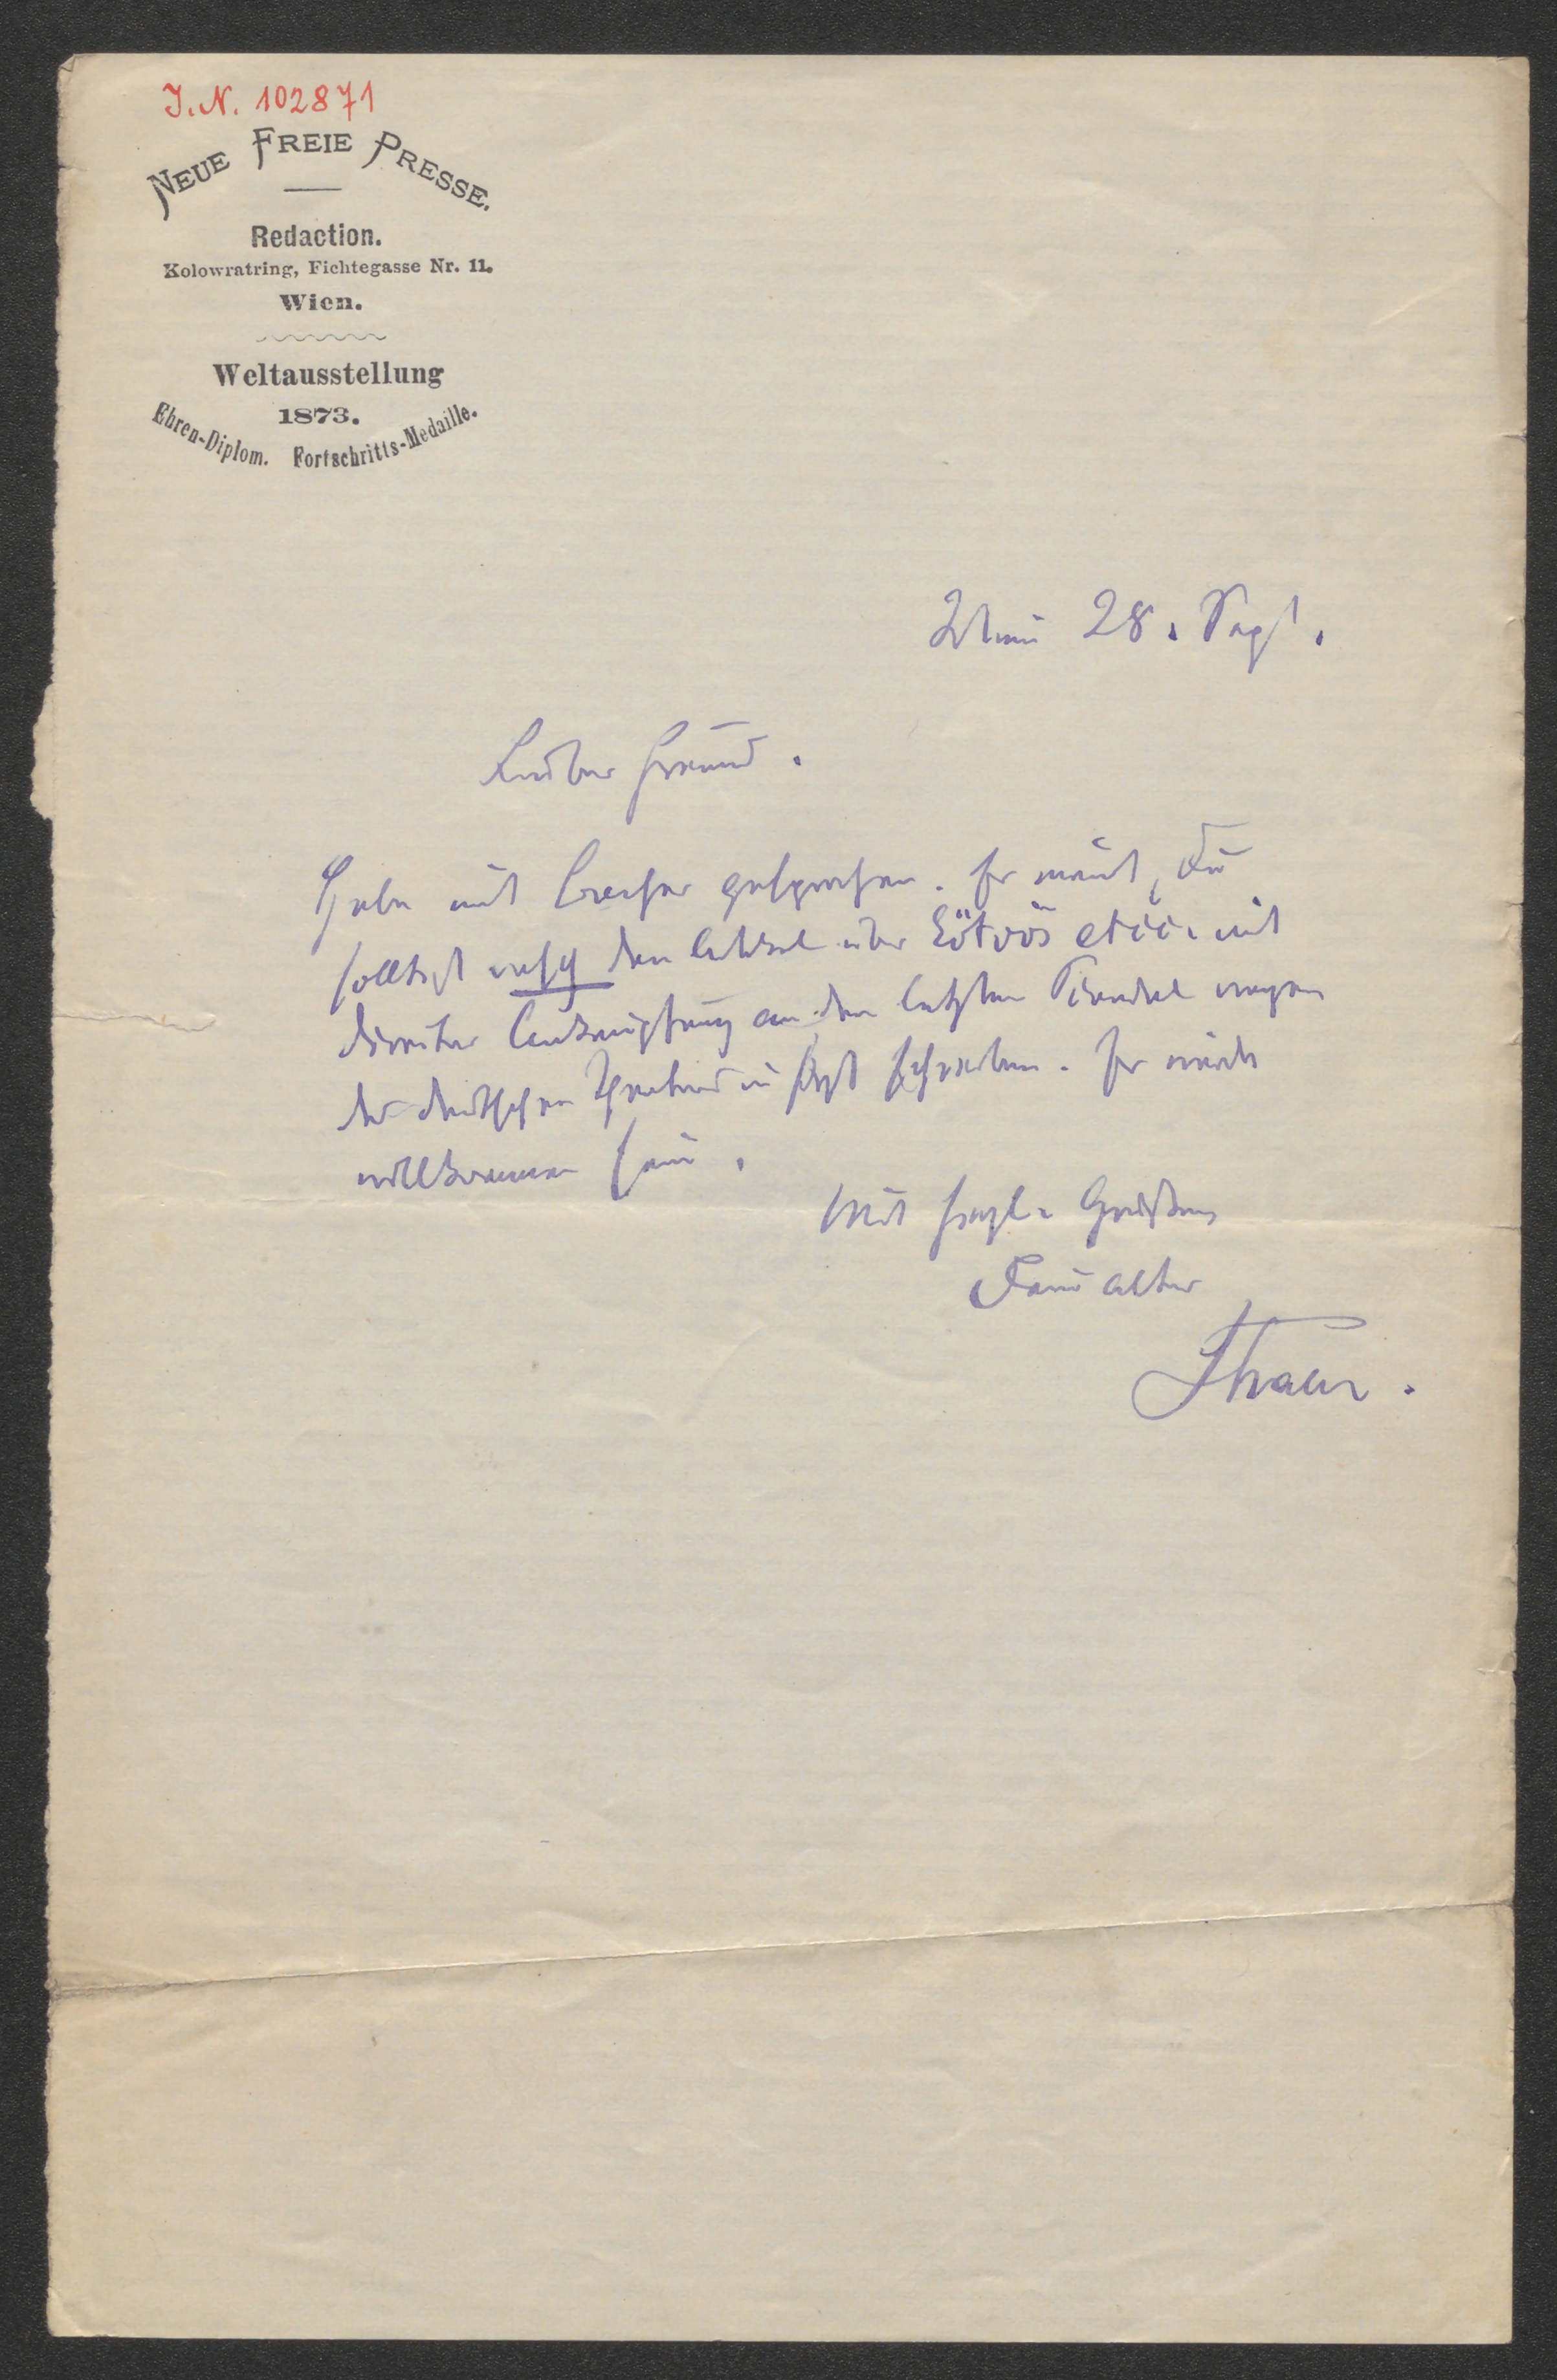 J. N. 102871
NEUE FREIE PRESSE.
Redaction.
Kolowratring, Fichtegasse Nr. 11.
Wien.
Weltausstellung
1873.
Ehren-Diplom. Fortschritts-Medaille.
Wien 28. Sept.
Lieber Freund.
Habe mit Bacher gesprochen. Er meint, Du
solltest rasch den Artikel über Eötvös etcc. mit
directer Anknüpfung an den letzten Skandal wegen
des deutschen Theaters in Pest schreiben. Er würde
willkommen sein.
Mit herzl. Grüßen
Dein alter
Thaler.